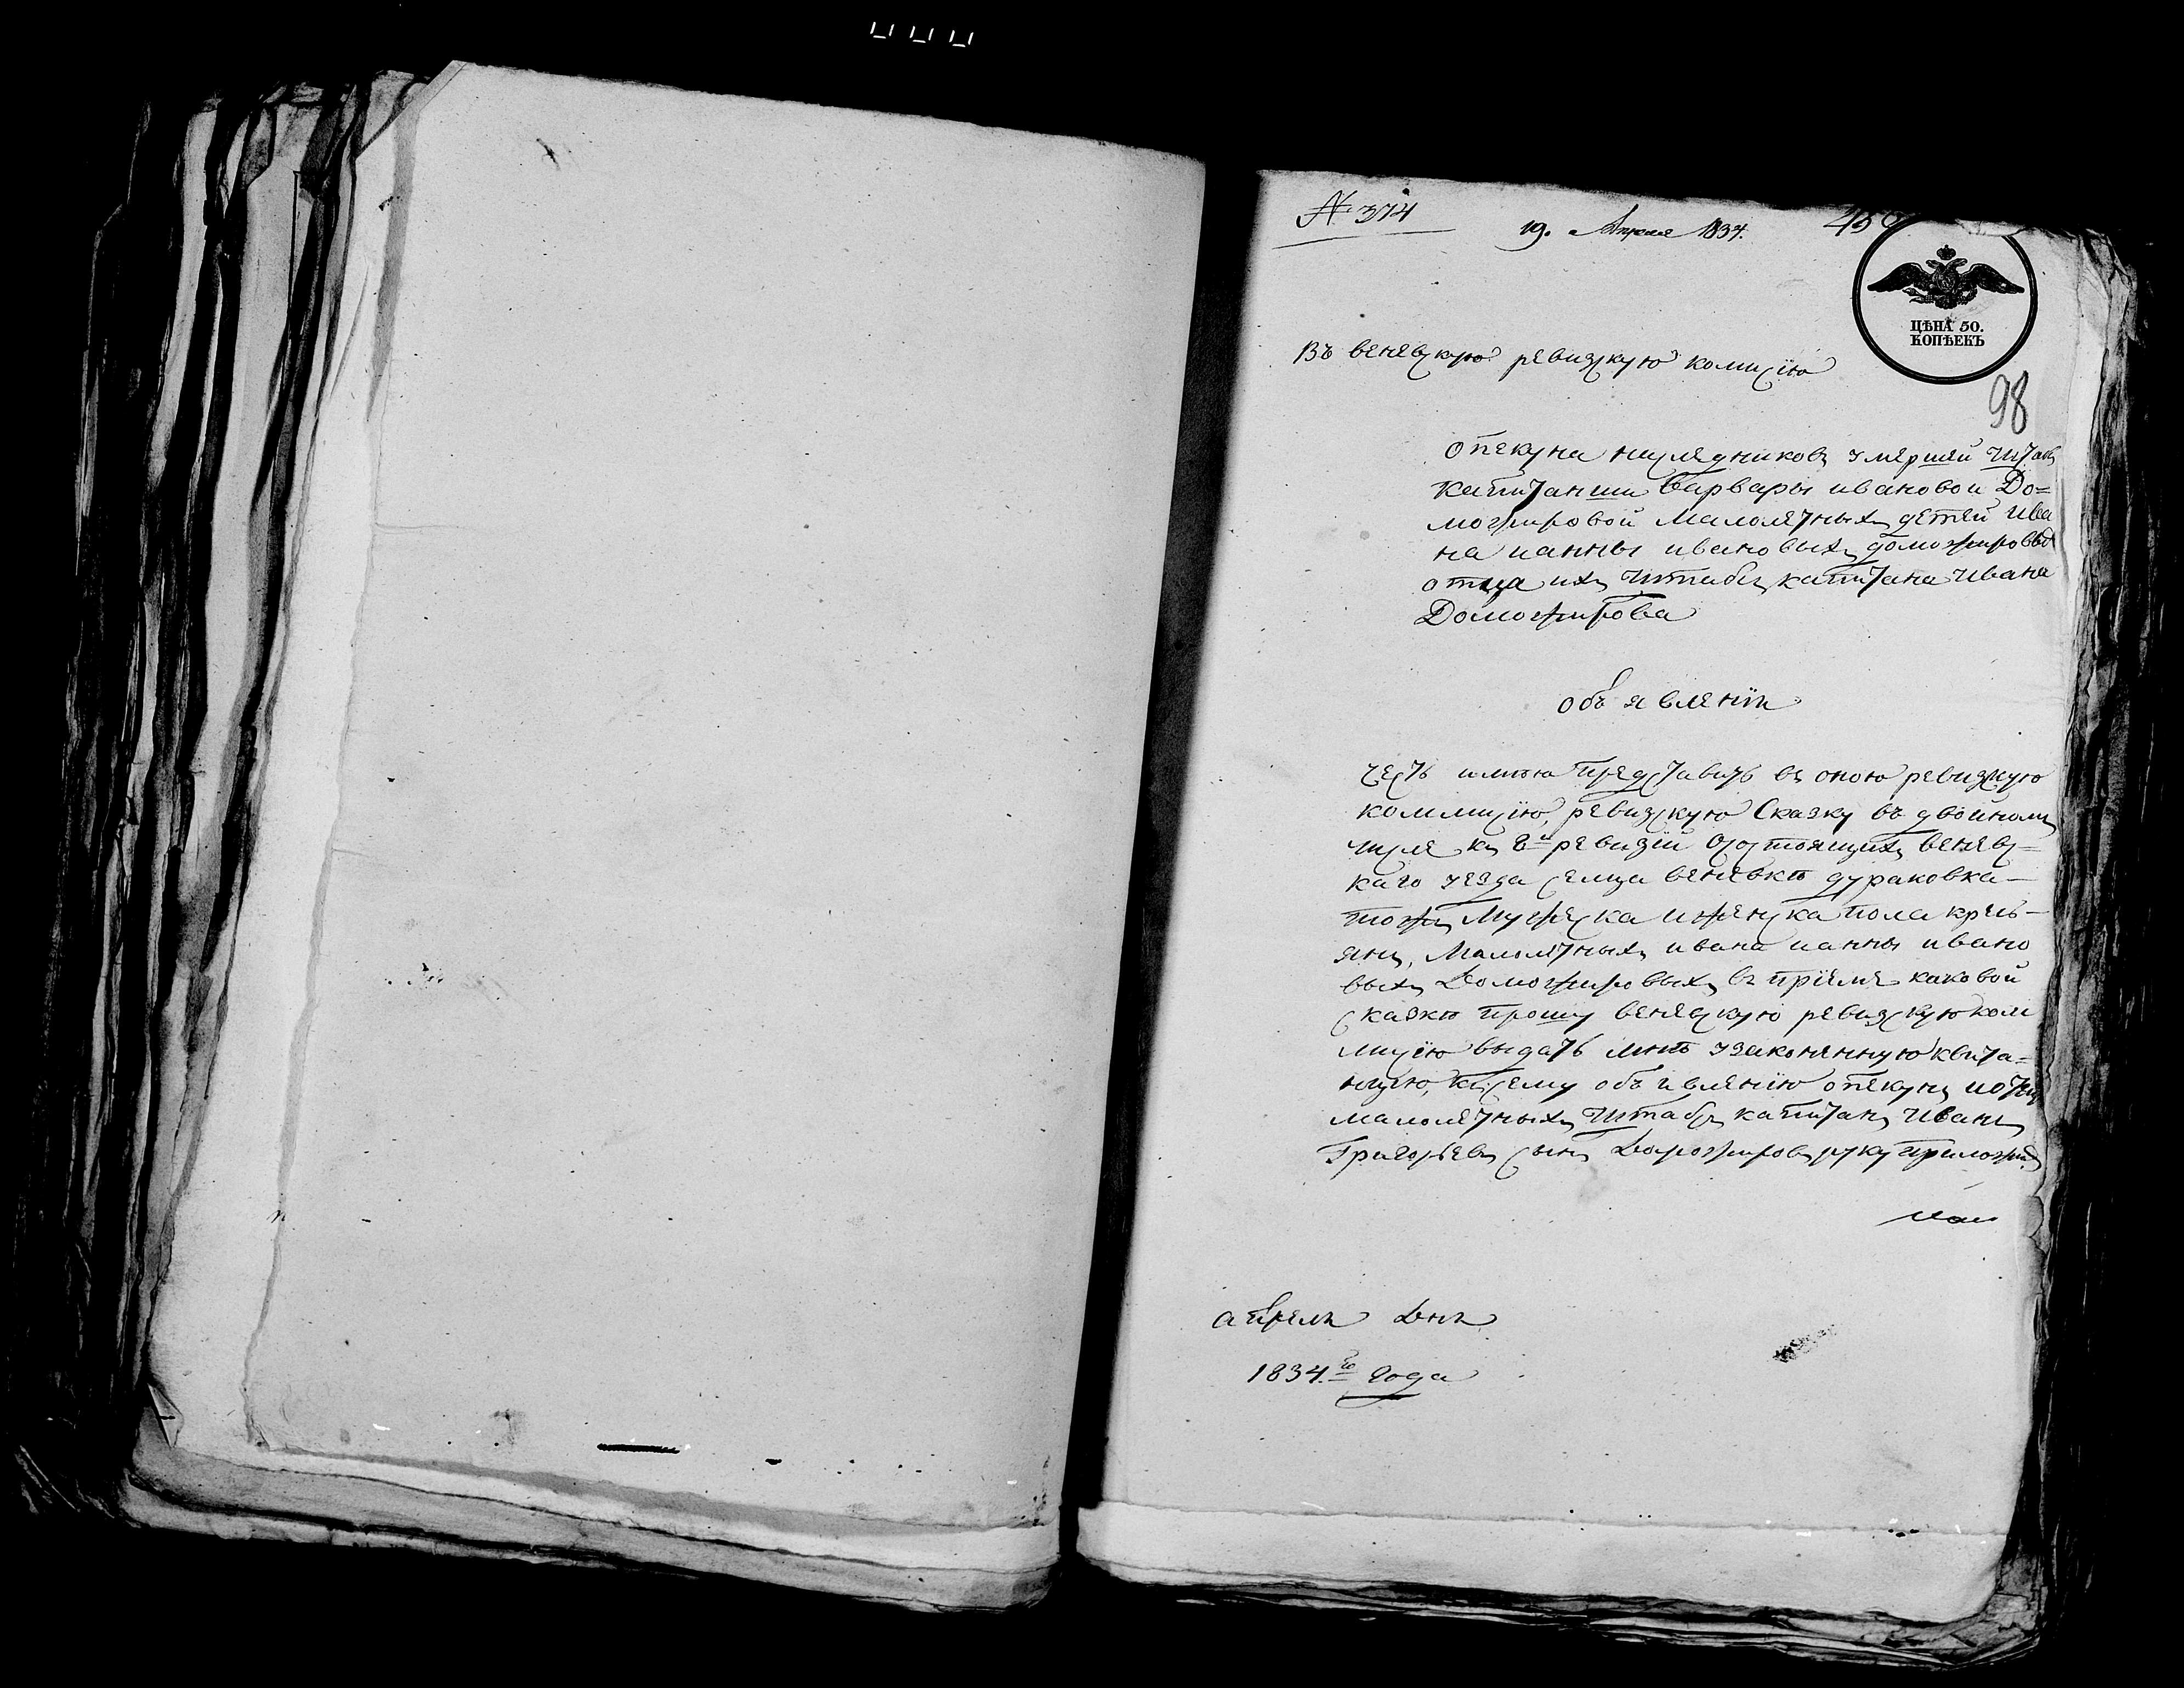 № 374
19. Апреля 1834.
ЦѢНА 50.
КОПѢЕКЪ
98
Въ веневскую ревизскую комисїю
опекуна наследниковъ умершей штабъ
капитанши Варвары ивановой До=
можировой Малолетныхъ детей Ива
на ианны ивановыхъ доможировыхъ
отца ихъ штабсъ капитана Ивана
Доможирова
объявленїи
честь имѣю представить въ оною ревизскую
коммисїю, ревизскую Сказку въ двойномъ
числе къ 8й ревизїи состоящихъ веневс=
каго уезда селца веневки дураковка
тожъ Мужеска иженска пола кресь-
янъ, Малолетныхъ ивана ианны ивано
выхъ Доможировыхъ въ прїеме каковой
сказки прошу веневскую ревизскую ком
мисїю выдать мнѣ узаконенную квита=
нцию, къ сему объявленїю опекунъ иотец
малолетныхъ штабсъ капитанъ Иванъ
Григорьевъ сынъ Доможировъ руку приложилъ
апреля Дня
1834.го года